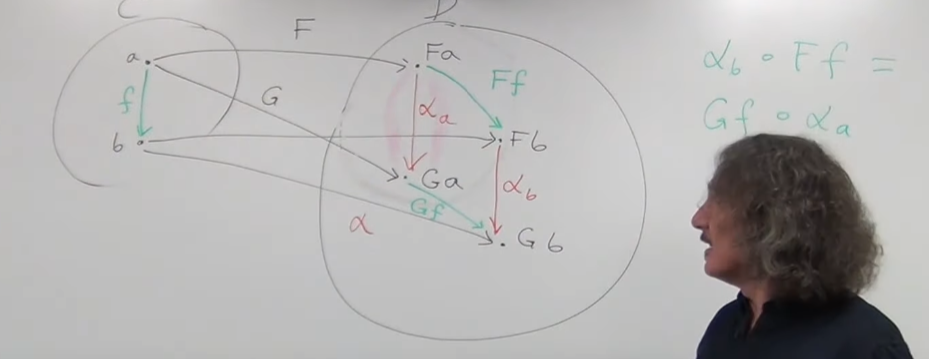 C
D
F
a
Fa
Ff
f
G
α_a
b
Fb
Ga
α_b
Gf
α
Gb
α_b ∘ Ff =
Gf ∘ α_a